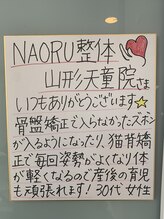 NAORU整体
山形天童院さま
いつもありがとうございます
骨盤矯正で入らなかったズボン
が入るようになったり、猫背矯
正で毎回姿勢がよくなり体
が軽くなるので産後の育児
も頑張れます! 30代 女性